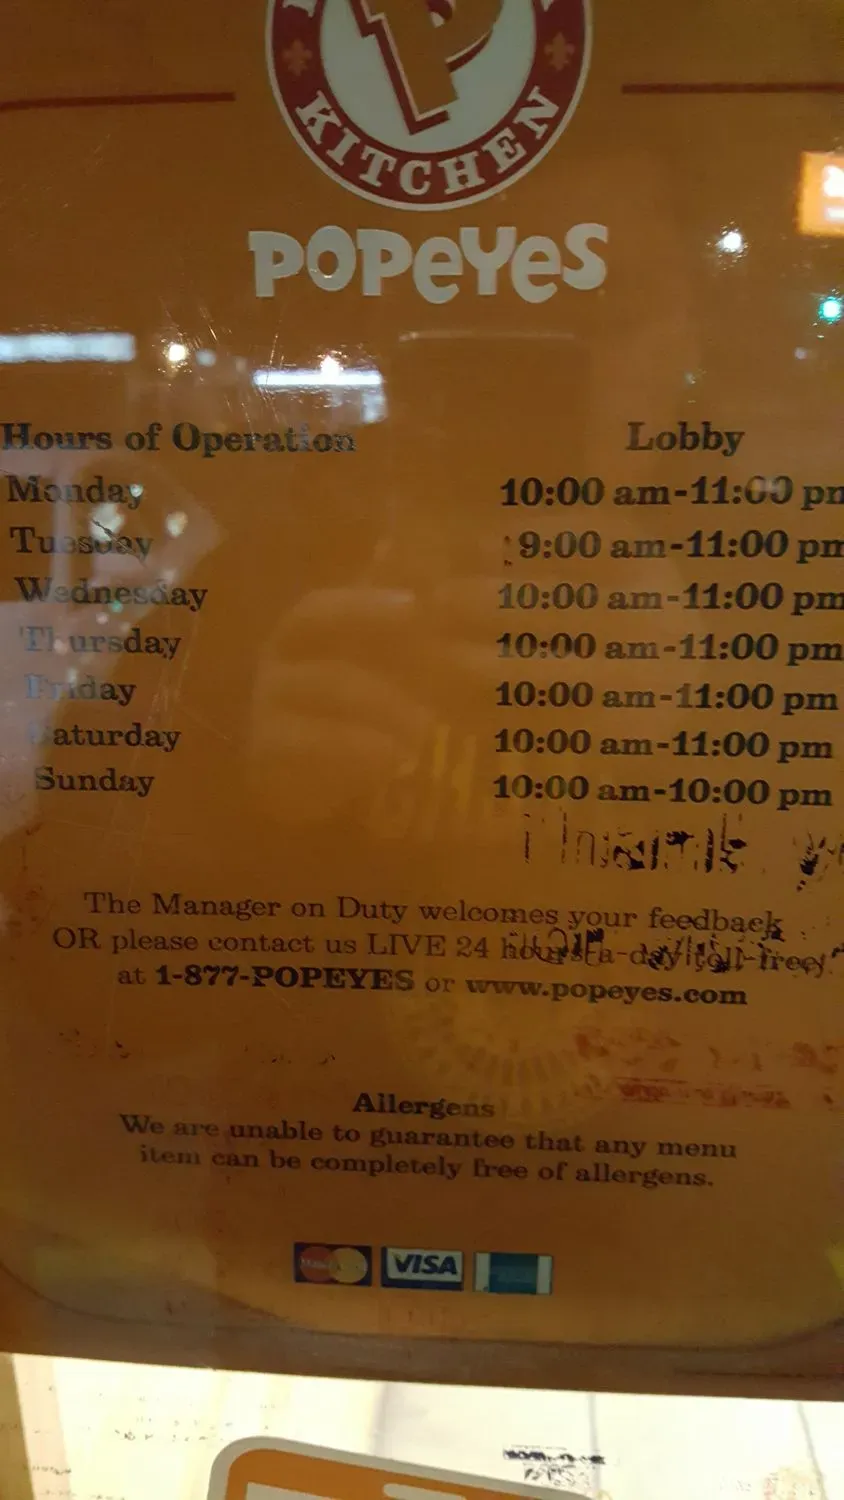 KITCHEN
POPEYES
Hours of Operation Lobby
Monday 10:00 am-11:00 pm
Tuesday 9:00 am-11:00 pm
Wednesday 10:00 am-11:00 pm
Thursday 10:00 am-11:00 pm
Friday 10:00 am-11:00 pm
Saturday 10:00 am-11:00 pm
Sunday 10:00 am-10:00 pm
Thank
The Manager on Duty welcomes your feedback
OR please contact us LIVE 24 hours-a-day toll-free,
at 1-877-POPEYES or www.popeyes.com
Allergens
We are unable to guarantee that any menu
item can be completely free of allergens.
VISA